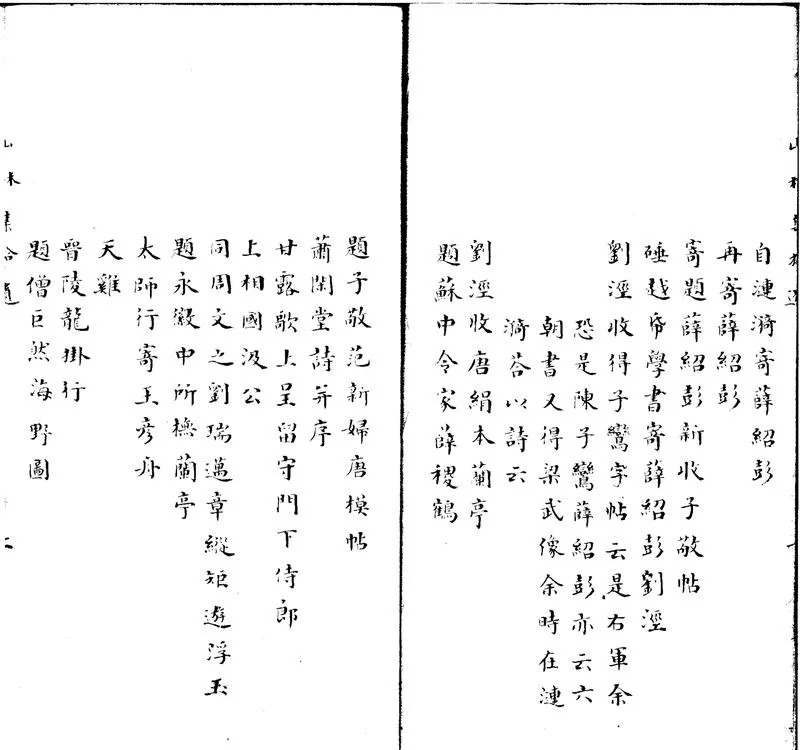 自漣漪寄薛紹彭
再寄薛紹彭
寄題薛紹彭新收子敬帖
硾越帋學書寄薛紹彭劉涇
劉涇收得子鸞字帖云是右軍余
恐是陳子鸞薛紹彭亦云六
朝書又得梁武像余時在漣
漪荅以詩云
劉涇收唐絹本蘭亭
題蘇中令家薛稷鶴
題子敬范新婦唐模帖
蕭閑堂詩并序
甘露歌上呈留守門下侍郎
上相國汲公
同周文之劉瑞邁章縱矩遊浮玉
題永徽中所橅蘭亭
太師行寄王彥舟
天雞
晉陵龍掛行
題僧巨然海野圖
山林集拾遺
二